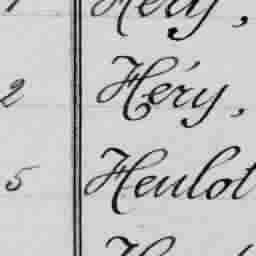 Héry,
2 Héry,
5 Heulot